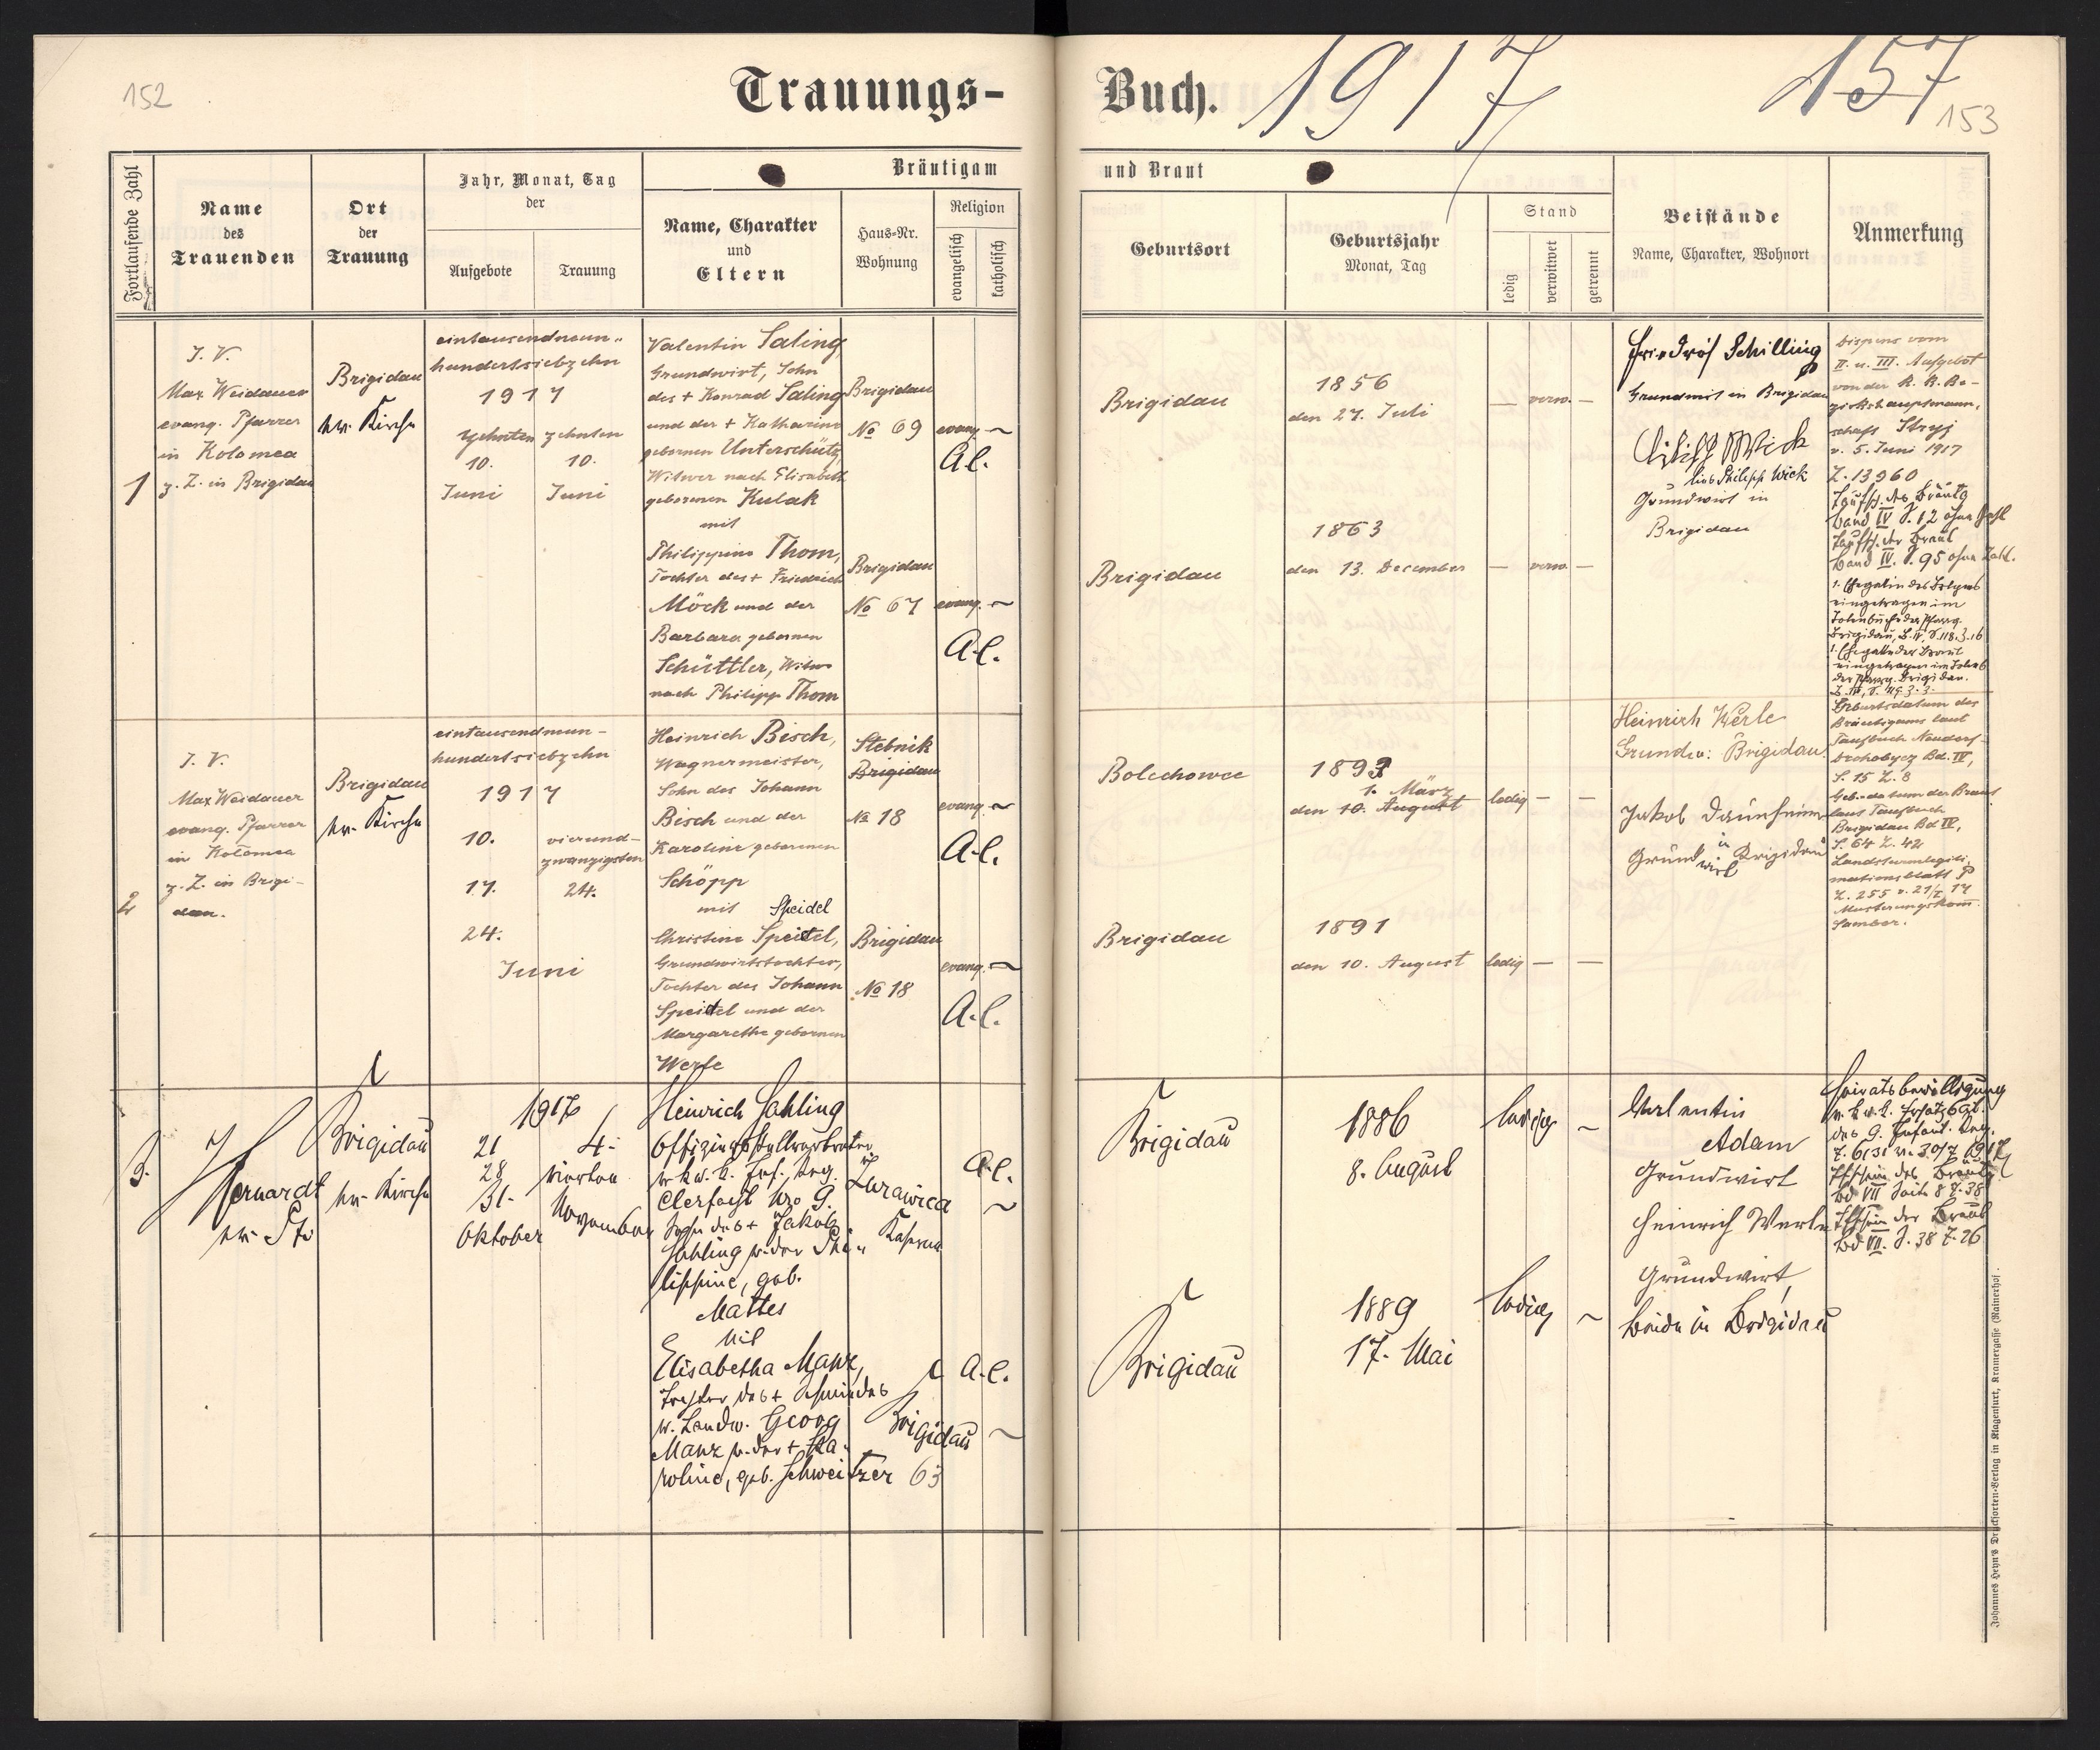 152
Trauungs-
Buch.
1917
157
153
Fortlaufende Zahl
Name
des
Trauenden
Ort
der
Trauung
Jahr, Monat, Tag
der
Aufgebote
Trauung
Bräutigam
Name, Charakter
und
Eltern
Haus-Nr.
Wohnung
Religion
evangelisch
katholisch
und Braut
Geburtsort
Geburtsjahr
Monat, Tag
Stand
ledig
verwitwet
getrennt
Beistände
Name, Charakter, Wohnort
Anmerkung
1
I. V.
Max Weidauer
evang. Pfarrer
in Kolomea
z. Z. in Brigidau
Brigidau
ev. Kirche
eintausendneun-
hundertsiebzehn
1917
zehnten zehnten
10. 10.
Juni Juni
Valentin Saling
Grundwirt, Sohn
des + Konrad Saling
und der + Katharina
gebornen Unterschütz,
Witwer nach Elisabeth
geborenen Kulak
mit
Philippine Thom,
Tochter des + Friedrich
Möck und der
Barbara gebornen
Schüttler, Witwe
nach Philipp Thom
Brigidau
No 69
evang. ~
A.C.
Brigidau
No 67
evang. ~
A.C.
Brigidau
1856
den 27. Juli
— verw. —
Brigidau
1863
den 13. December
— verw. —
Friedrich Schilling
Grundwirt in Brigidau
Philipp Wick
Grundwirt in
Brigidau
Dispens vom
II. u. III. Aufgebot
von der K. K. Be-
zirkshauptmann-
schaft Stryj
v. 5. Juni 1917
Z. 13960
Taufsch. des Bräutg
Band IV S. 12 ohne Zahl
Taufsch. der Braut
Band IV. S. 95 ohne Zahl.
eingetragen im
Totenbuch der Pfarrg.
Brigidau, B. IV, S. 118. Z. 16
1. Ehegatte der Braut
der Pfarrg. Brigidau.
2
I. V.
Max Weidauer
evang. Pfarrer
in Kolomea
z. Z. in Brigi-
dau.
Brigidau
ev. Kirche
eintausendneun-
hundertsiebzehn
1917
10. vierund-
zwanzigsten
17. 24.
24.
Juni
Heinrich Bisch,
Wagnermeister,
Sohn des Johann
Bisch und der
Karoline geborenen
Schöpp
mit Speidel
Christine Speidel,
Grundwirtstochter,
Tochter des Johann
Speidel und der
Margarethe gebornen
Werle
Stebnik
Brigidau
No 18
evang. ~
A.C.
Brigidau
No 18
evang. ~
A.C.
Bolechowce
1893
1. März
den 10. August
ledig — —
Brigidau
1891
den 10. August
ledig — —
Heinrich Werle
Grundw: Brigidau
Jakob Daunheimer
Grundwirt in Brigidau
Geburtsdatum des
Bräutigams laut
Taufbuch Neudorf-
Drohobycz Bd. IV,
S. 15 Z. 8
Geb.-datum der Braut
laut Taufbuch
Brigidau Bd IV,
S. 64 Z. 42
Landsturmlegiti-
mationsblatt
Z. 255 v. 21/5 17
Musterungskomm.
Sambor.
3.
J Hernardt
ev. Pfr
Brigidau
ev. Kirche
1917
21 4.
28 vierten
31. November
Oktober
Heinrich Sahling
Offiziersstellvertreter
v. k. u. k. Inf. Reg.
Clerfayt Nro 9.
Sohn des + Jakob
Sahling u. der Phi-
lippine, geb.
Mattes
mit
Elisabetha Manz,
Tochter des + Schmiedes
u. Landw. Georg
Manz u. der + Ka-
roline, geb. Schweitzer
Zurawica
Kaserne
A.C.
~
Brigidau
63
A.C.
~
Brigidau
1886
8. August
ledig ~
Brigidau
1889
17. Mai
ledig ~
Valentin
Adam
Grundwirt
Heinrich Werle
Grundwirt,
beide in Brigidau
Heiratsbewilligung
v. k. u. k. Ersatzbat.
des 9. Infant. Reg.
Z. 6131 v. 30/7 1917
Tfschein des Bräutg.
Bd VII Seite 8 Z. 38
Tfschein der Braut
Bd VII. S. 38 Z. 26
Johannes Heyn's Drucksorten-Verlag in Klagenfurt, Kramergasse (Rainerhof).